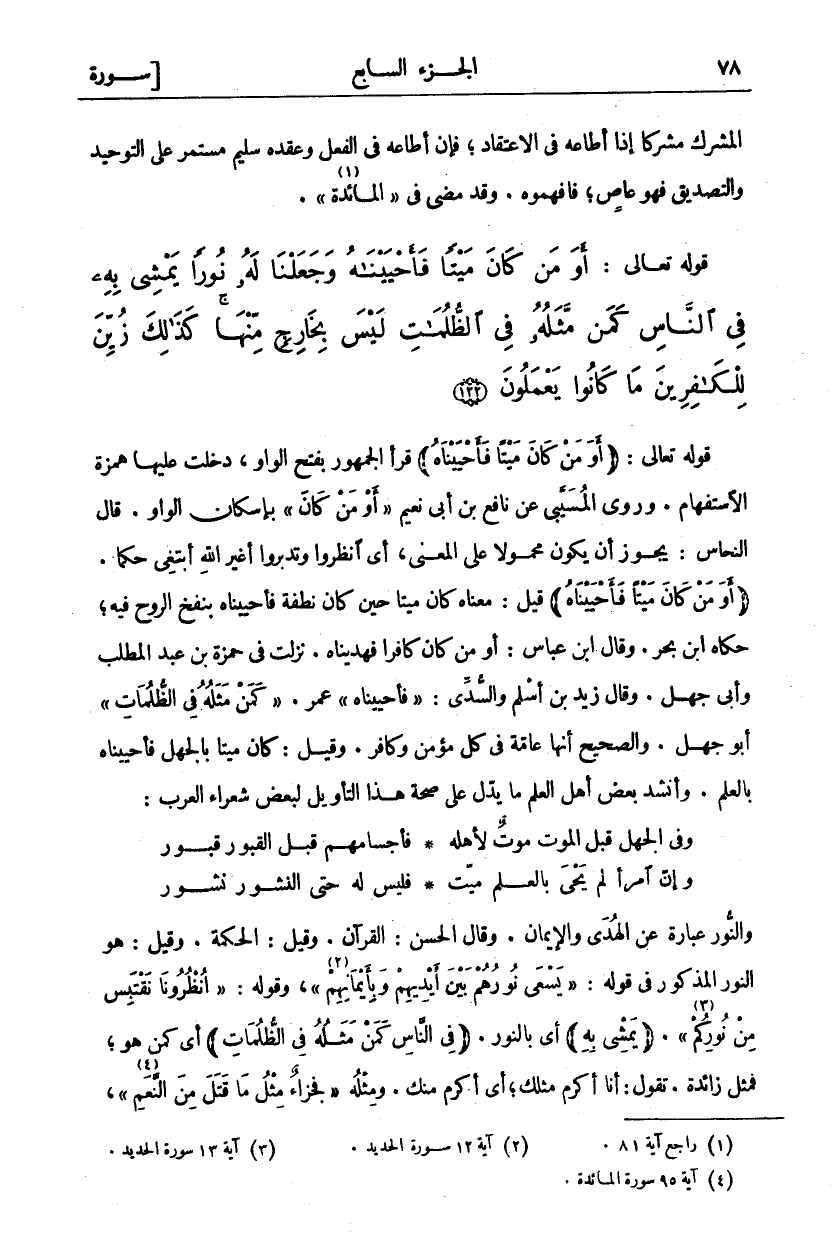 ٧٨ الجـزء السـابع [سـورة
المشرك مشركا إذا أطاعه فى الاعتقاد ؛ فإن أطاعه فى الفعل وعقده سليم مستمر على التوحيد
والتصديق فهو عاصٍ؛ فافهموه . وقد مضى فى « المـائدة (١) » .
قوله تعـالى : أَوَ مَن كَانَ مَيْتًا فَأَحْيَيْنَـٰهُ وَجَعَلْنَا لَهُۥ نُورًا يَمْشِى بِهِۦ
فِى ٱلنَّاسِ كَمَن مَّثَلُهُۥ فِى ٱلظُّلُمَـٰتِ لَيْسَ بِخَارِجٍ مِّنْهَا ۚ كَذَٰلِكَ زُيِّنَ
لِلْكَـٰفِرِينَ مَا كَانُوا يَعْمَلُونَ ﴿١٢٢﴾
قوله تعالى : ﴿ أَوَ مَنْ كَانَ مَيْتًا فَأَحْيَيْنَاهُ ﴾ قرأ الجمهور بفتح الواو ، دخلت عليهـا همزة
الاستفهام . وروى المُسَيَّبى عن نافع بن أبى نعيم « أَوْ مَنْ كَانَ » بإسكان الواو . قال
النحاس : يجـوز أن يكون محمولا على المعـنى ، أى ٱنظروا وتدبروا أغير اللهِ أبتغى حكما .
﴿ أَوَ مَنْ كَانَ مَيْتًا فَأَحْيَيْنَاهُ ﴾ قيل : معناه كان ميتا حين كان نطفة فأحييناه بنفخ الروح فيه ؛
حكاه ابن بحر . وقال ابن عباس : أو من كان كافرا فهديناه . نزلت فى حمزة بن عبد المطلب
وأبى جهـل . وقال زيد بن أسْلم والسُّدِّى : « فأحييناه » عمر . « كَمَنْ مَثَلُهُ فِى الظُّلُمَاتِ »
أبو جهـل . والصحيح أنها عامّة فى كل مؤمن وكافر . وقيـل : كان ميتا بالجهل فأحييناه
بالعلم . وأنشد بعض أهل العلم ما يدّل على صحة هـذا التأويل لبعض شعراء العرب :
وفى الجهل قبل الموت موتٌ لأهله * فأجسامهـم قبـل القبور قبـور
وإنّ ٱمرأ لم يَحْىَ بالعـلم ميّت * فليس له حتى النشـور نشـور
والنُّور عبارة عن الهُدَى والإيمان . وقال الحسن : القرآن . وقيل : الحكمة . وقيل : هو
النور المذكور فى قوله : « يَسْعَى نُورُهُمْ بَيْنَ أَيْدِيهِمْ وَبِأَيْمَانِهِمْ (٢) » ، وقوله : « ٱنْظُرُونَا نَقْتَبِسْ
مِنْ نُورِكُمْ (٣) » . ﴿ يَمْشِى بِهِ ﴾ أى بالنور . ﴿ فِى النَّاسِ كَمَنْ مَثَلُهُ فِى الظُّلُمَاتِ ﴾ أى كمن هو ؛
فمثل زائدة . تقول : أنا أكرم مثلك ؛ أى أكرم منك . ومِثْلُه « فَجَزَاءٌ مِثْلُ مَا قَتَلَ مِنَ النَّعَمِ (٤) » ،
(١) راجع آية ٨١ . (٢) آية ١٢ سـورة الحديد . (٣) آية ١٣ سورة الحديد .
(٤) آية ٩٥ سورة المـائدة .